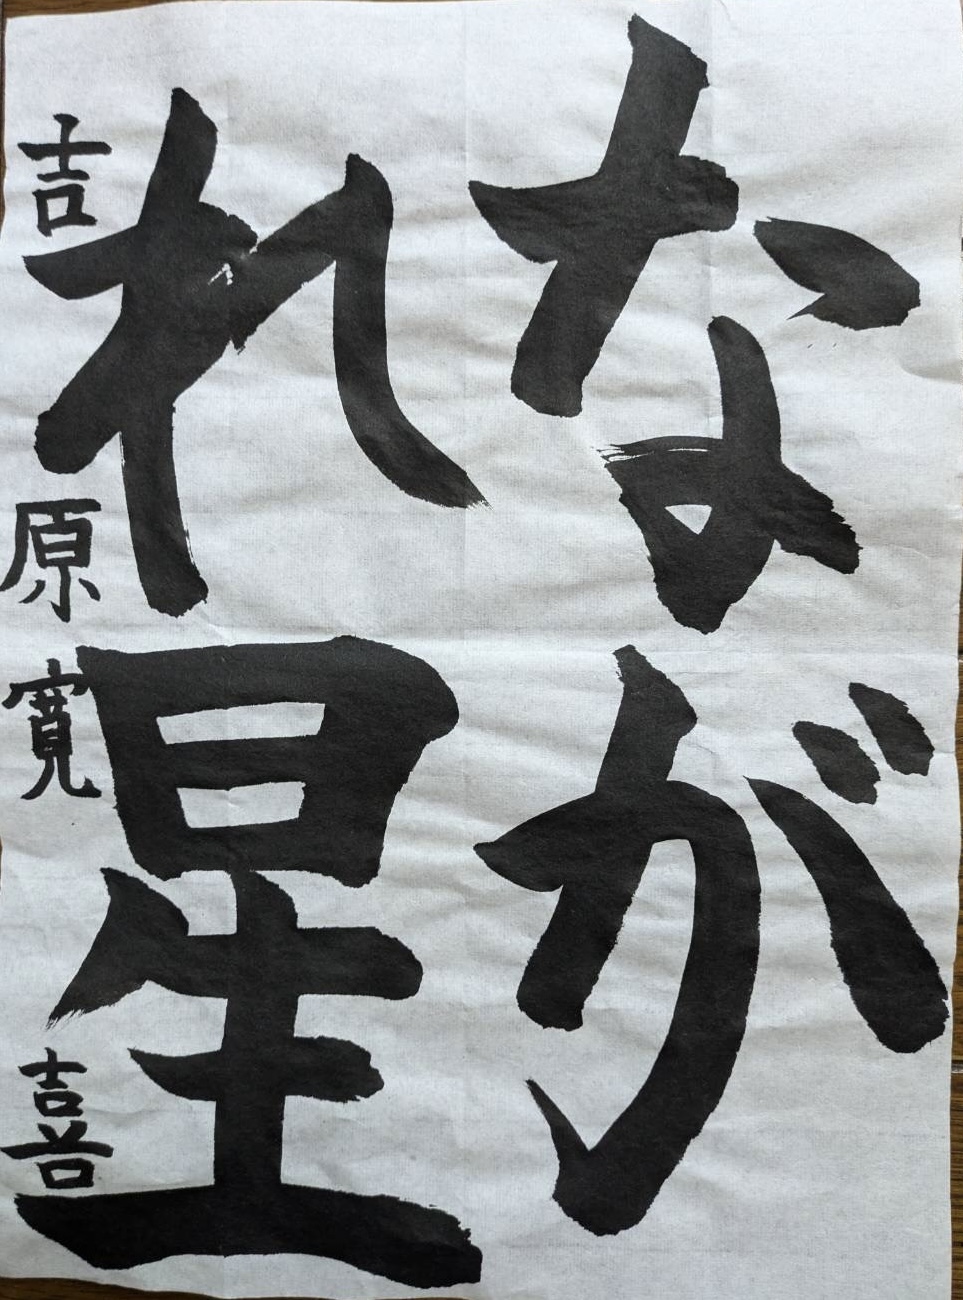 なが
れ星
吉原寛喜